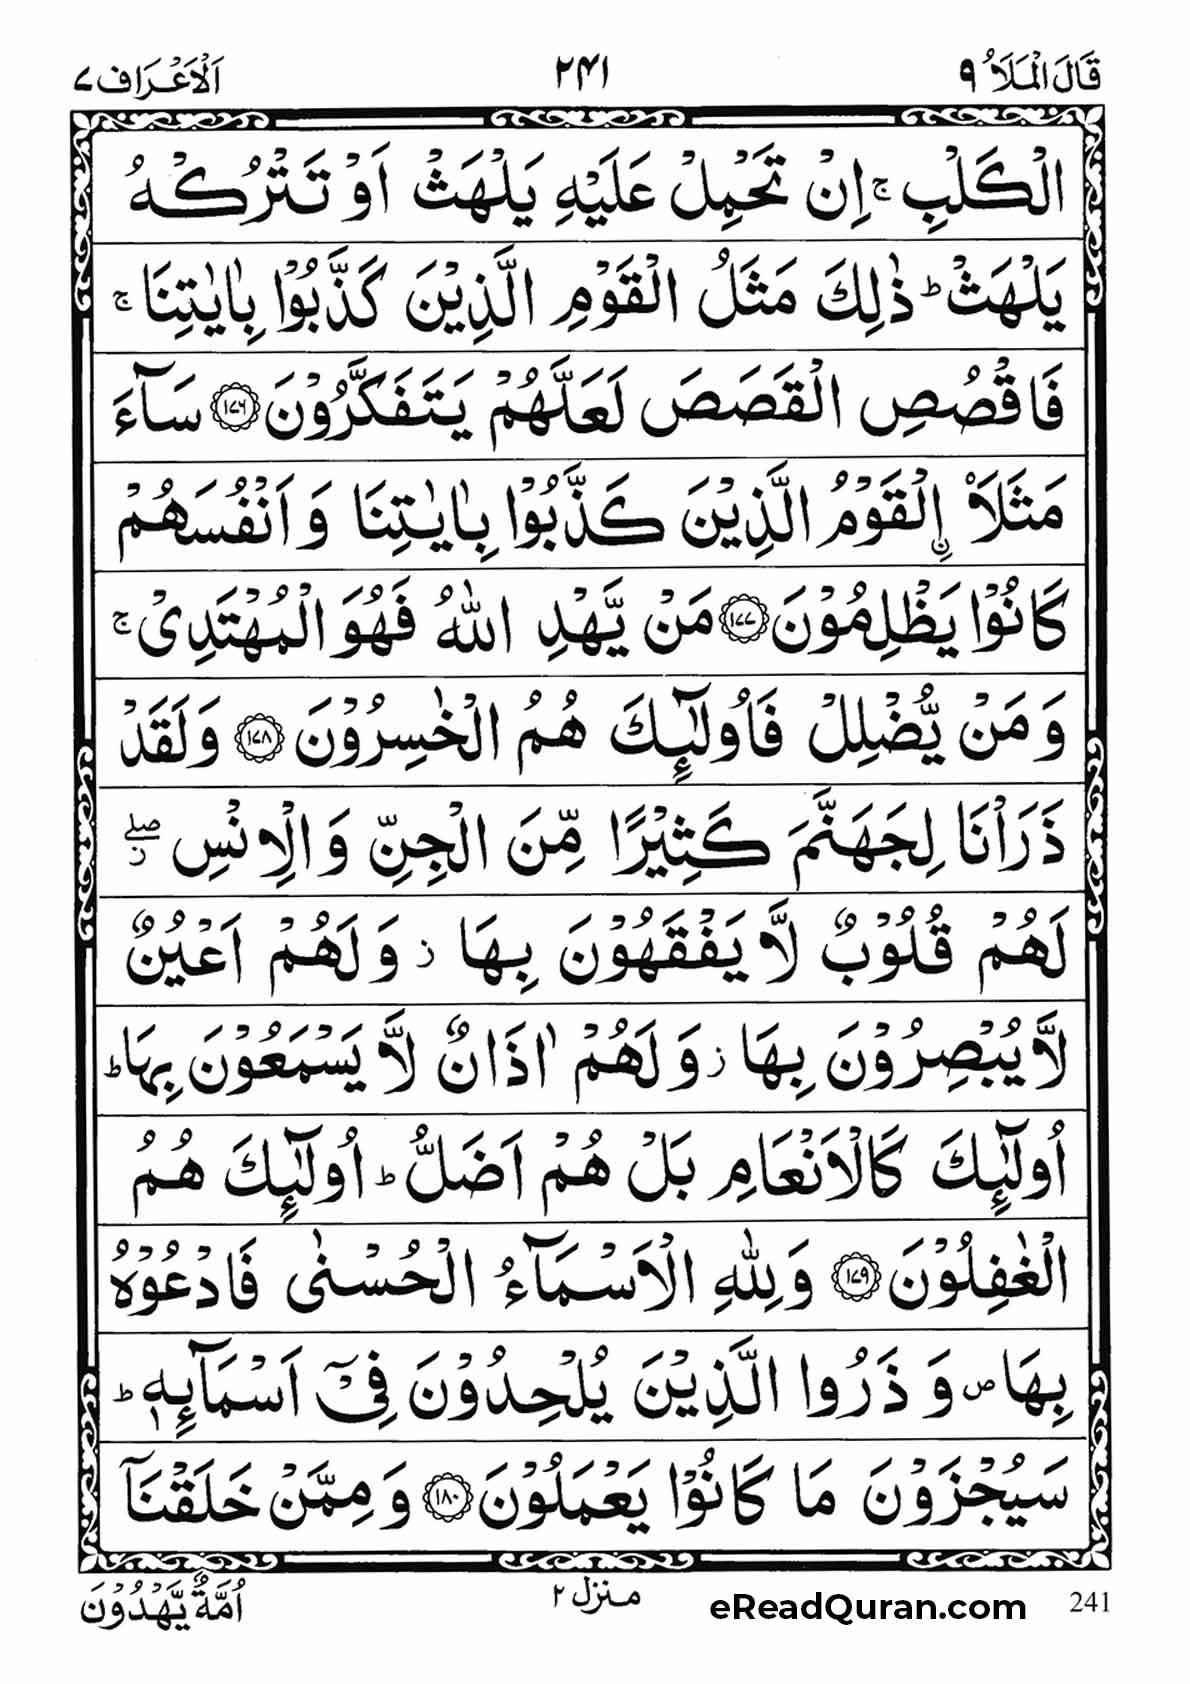 قَالَ الْمَلَاُ ۹ ۲۴۱ اَلْاَعْرَاف ۷
الْكَلْبِ ۚ اِنْ تَحْمِلْ عَلَيْهِ يَلْهَثْ اَوْ تَتْرُكْهُ
يَلْهَثْ ؕ ذٰلِكَ مَثَلُ الْقَوْمِ الَّذِيْنَ كَذَّبُوْا بِاٰيٰتِنَا ۚ
فَاقْصُصِ الْقَصَصَ لَعَلَّهُمْ يَتَفَكَّرُوْنَ ۱۷۶ سَآءَ
مَثَلَاْ ۨالْقَوْمُ الَّذِيْنَ كَذَّبُوْا بِاٰيٰتِنَا وَاَنْفُسَهُمْ
كَانُوْا يَظْلِمُوْنَ ۱۷۷ مَنْ يَّهْدِ اللّٰهُ فَهُوَ الْمُهْتَدِىْ ۚ
وَمَنْ يُّضْلِلْ فَاُولٰٓئِكَ هُمُ الْخٰسِرُوْنَ ۱۷۸ وَلَقَدْ
ذَرَاْنَا لِجَهَنَّمَ كَثِيْرًا مِّنَ الْجِنِّ وَالْاِنْسِ ۖ ز
لَهُمْ قُلُوْبٌ لَّا يَفْقَهُوْنَ بِهَا ز وَلَهُمْ اَعْيُنٌ
لَّا يُبْصِرُوْنَ بِهَا ز وَلَهُمْ اٰذَانٌ لَّا يَسْمَعُوْنَ بِهَا ؕ
اُولٰٓئِكَ كَالْاَنْعَامِ بَلْ هُمْ اَضَلُّ ؕ اُولٰٓئِكَ هُمُ
الْغٰفِلُوْنَ ۱۷۹ وَلِلّٰهِ الْاَسْمَآءُ الْحُسْنٰى فَادْعُوْهُ
بِهَا ص وَذَرُوا الَّذِيْنَ يُلْحِدُوْنَ فِىْۤ اَسْمَآئِهٖ ؕ
سَيُجْزَوْنَ مَا كَانُوْا يَعْمَلُوْنَ ۱۸۰ وَمِمَّنْ خَلَقْنَاۤ
اُمَّةٌ يَّهْدُوْنَ منزل ۲ eReadQuran.com 241